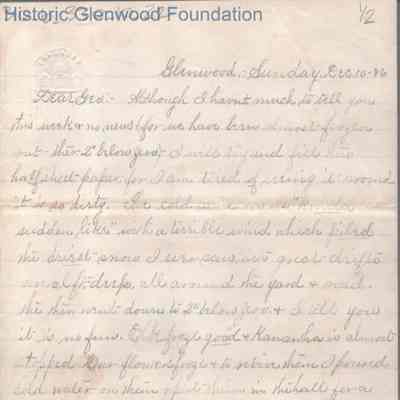 Historic Glenwood Foundation
1/2
Glenwood, Sunday, Dec 10-76
Dear Geo:- Although I havnt much to tell you
this week & no news (for we have been almost frozen
out - ther 2° below zero) I will try and fill this
half sheet paper, for I am tired of
it is so dirty. The cold
sudden like" with a terrible wind which piled
the driest snow I ever saw, into great drifts
all around the yard & road.
the ther went down to 2° below zero & I tell you
it is no fun. Elk froze good & Kanawha is almost
stopped. Our flowers froze & to retrieve them I poured
cold water on them & put them in the hall for a